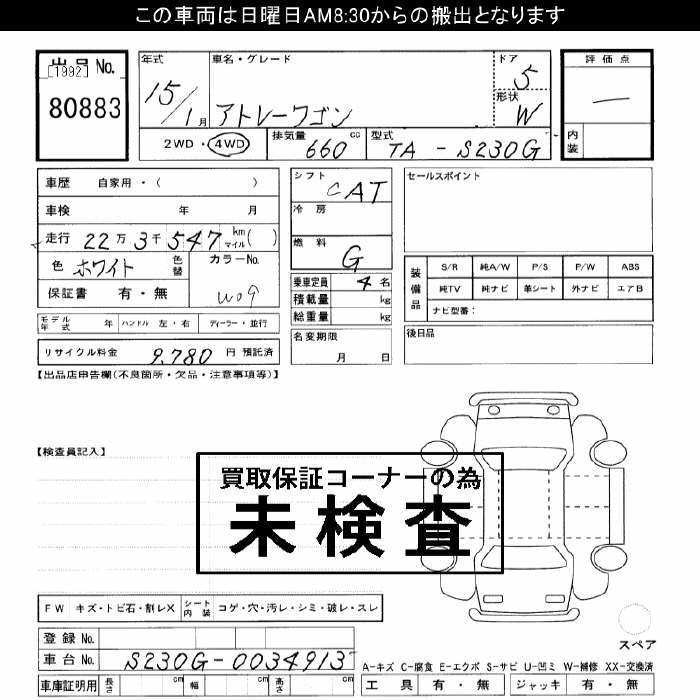 この車両は日曜日AM8:30からの搬出となります
出品No.
[1992]
80883
年式
15/1月
車名・グレード
アトレーワゴン
ドア
5
形状
W
評価点
—
内装
2WD・4WD
排気量
660 cc
型式
TA - S230G
車歴 自家用・( )
車検 年 月
走行 22万3千547 km マイル ( )
色 ホワイト 色替
カラーNo.
W09
保証書 有・無
シフト
CAT
冷房
燃料
G
乗車定員 4名
積載量 kg
総重量 kg
名変期限
月 日
セールスポイント
装備品
S/R 純A/W P/S P/W ABS
純TV 純ナビ 革シート 外ナビ エアB
ナビ型番:
後日品
モデル年式 年 ハンドル 左・右 ディーラー・並行
リサイクル料金 9.780 円 預託済
【出品店申告欄(不良箇所・欠品・注意事項等)】
【検査員記入】
買取保証コーナーの為
未検査
FW キズ・トビ石・割レX シート内装 コゲ・穴・汚レ・シミ・破レ・スレ
登録No.
車台No. S230G-0034913
車庫証明用 長さ cm 幅 cm 高さ cm
スペア
A-キズ C-腐食 E-エクボ S-サビ U-凹ミ W-補修 XX-交換済
工具 有・無 ジャッキ 有・無